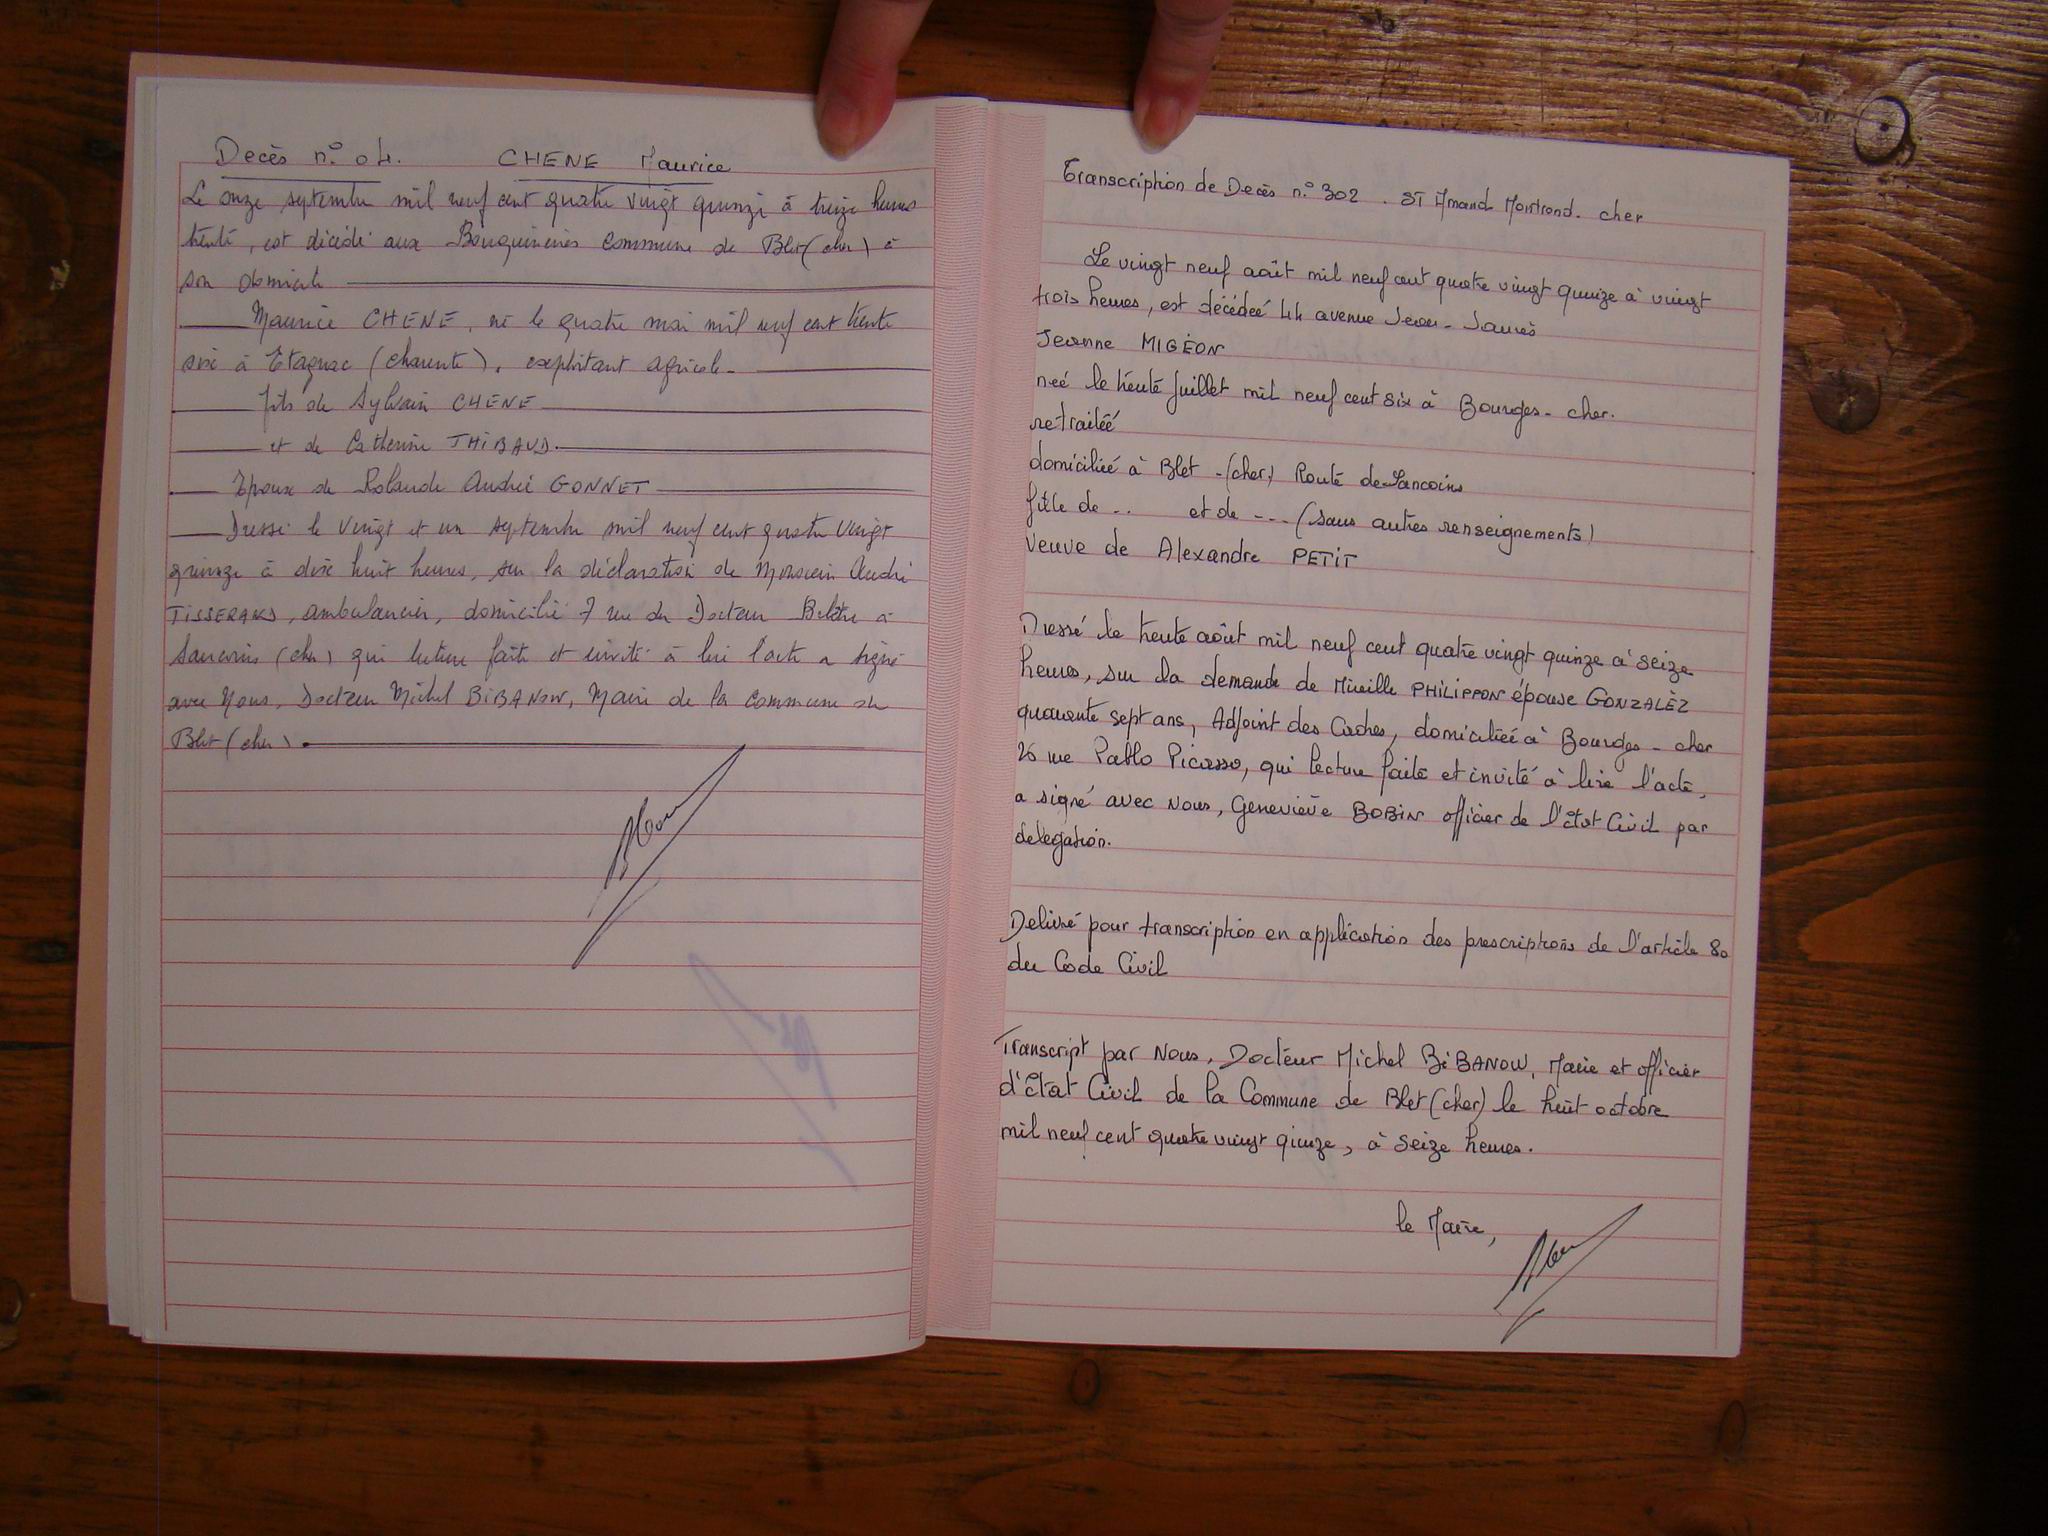 Decès n° 04. CHENE Maurice
Le onze septembre mil neuf cent quatre vingt quinze à treize heures
trente, est décédé aux Bouquineries Commune de Blet (cher) à
son domicile
Maurice CHENE, né le quatre mai mil neuf cent trente
six à Etagnac (charente), exploitant agricole-
fils de Sylvain CHENE
et de Catherine THIBAUD.
Epoux de Rolande Andrée GONNET
Dressé le vingt et un septembre mil neuf cent quatre vingt
quinze à dix huit heures, sur la déclaration de Monsieur André
, ambulancier, domicilié 7 rue du Docteur à
Sancoins (cher) qui lecture faite et invité à lire l'acte a signé
avec Nous, Docteur Michel BIBANOW, Maire de la commune de
Blet (cher).
Transcription de Decès n° 302 . ST Amand Montrond. cher
Le vingt neuf août mil neuf cent quatre vingt quinze à vingt
trois heures, est décédeé 44 avenue Jean-Jaurès
Jeanne MIGEON
neé le trente Juillet mil neuf cent six à Bourges- cher.
retraitéé
domiciliéé à Blet -(cher) Route de Sancoins
fille de .. et de --- (sans autres renseignements)
Veuve de Alexandre PETIT
Dressé le trente août mil neuf cent quatre vingt quinze à seize
heures, sur la demande de Mireille PHILIPPON épouse GONZALEZ
quarante sept ans, Adjoint des Cadres, domiciliéé à Bourges - cher
26 rue Pablo Picasso, qui lecture faite et invité à lire l'acte,
a signé avec Nous, Geneviève BOBIN officier de l'état Civil par
delegation.
Delivré pour transcription en application des prescriptions de l'article 80
du Code Civil
Transcript par Nous, Docteur Michel BIBANOW, Maire et officier
d'état Civil de la Commune de Blet (cher) le huit octobre
mil neuf cent quatre vingt quinze, à seize heures.
le Maire,